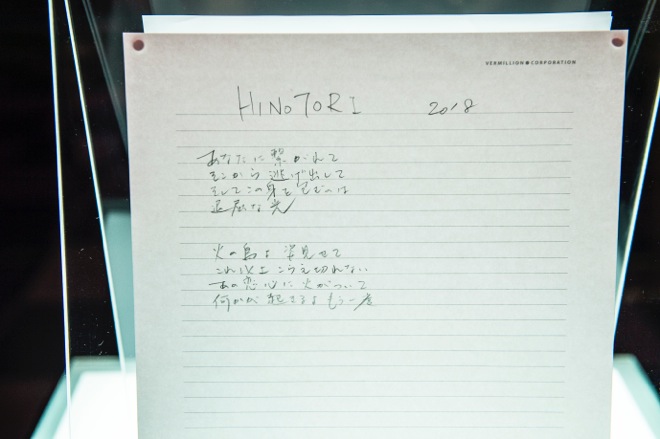 VERMILLION CORPORATION
HINOTORI 2018
あなたに繋がれて
そこから逃げ出して
そしてこの身を包むのは
退屈な光
火の鳥よ 姿見せて
これ以上こらえ切れない
あの恋心に火がついて
何かが起きるよ もう一度